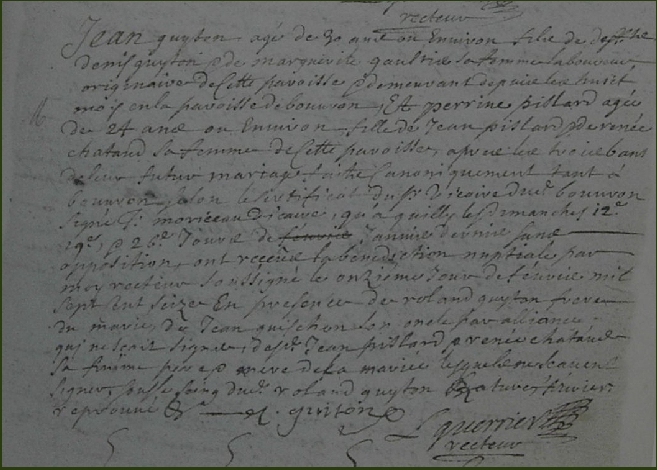 recteur
Jean guyton agé de 30 ans ou Environ fils de deffunt
denis guyton & de marguerite gaultier sa femme laboureur
originaire de Cette paroisse & demeurant depuis les huict
mois en la paroisse de bouvron, Et perrine pillard agée
de 24 ans ou Environ, fille de Jean pillard & de renée
chataud sa femme de Cette paroisse, apres les trois bans
de leur futur mariage faits Canoniquement tant à
bouvron selon le certificat du Sr Vicaire dud. bouvron
signé moriceau vicaire, qu'a quilly les dimanches 12e
19e, & 26e Jours de feuvrier Janvier dernier sans
opposition, ont receu la bénédiction nuptiale par
moy recteur soussigné le onzieme Jour de feuvrier mil
sept cent seize En presence de roland guyton frere
du marié, de Jean guischon son oncle par alliance
qui ne scait signer, desd. Jean pillard & renée chataud
sa femme pere & mere de la mariée lesquels ne scavent
signer, sous le seing dud. roland guyton &
r guiton
L guerrier
recteur